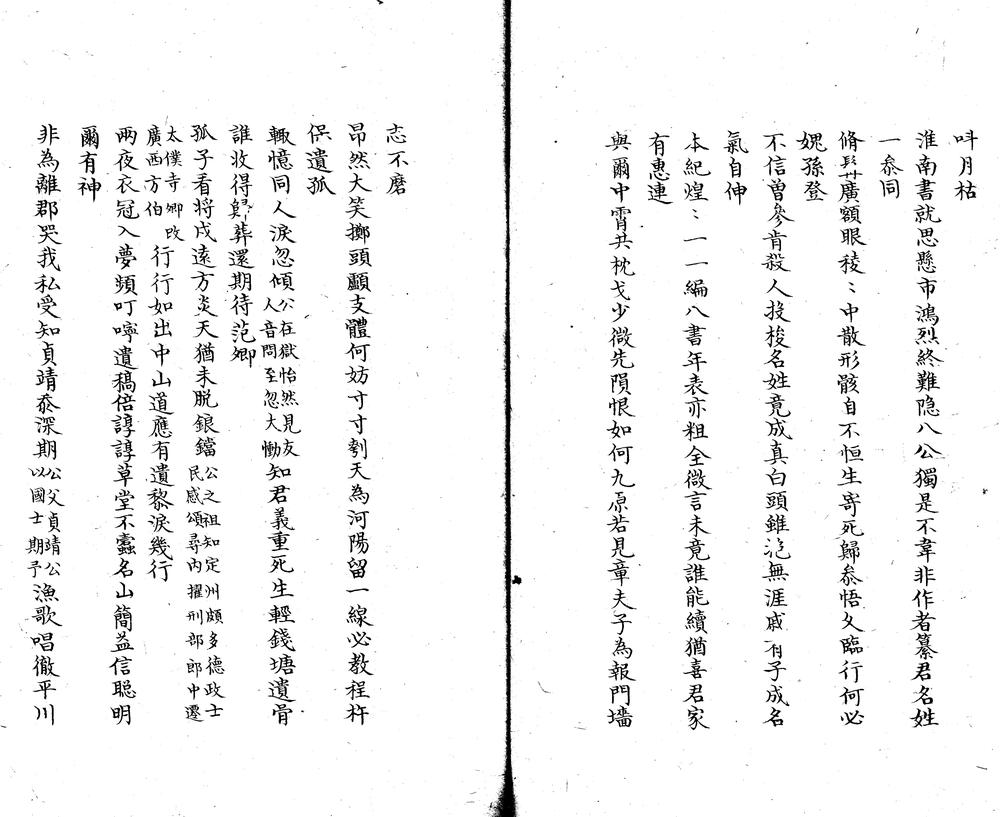 呌月枯
淮南書就思懸市鴻烈終難隐八公獨是不韋非作者纂君名姓
一叅同
脩髯廣額眼稜〻中散形骸自不恒生寄死歸叅悟久臨行何必
媿孫登
不信曽參肯殺人投梭名姓竟成真白頭錐淴無涯戚有子成名
氣自伸
本紀煌〻一一編八書年表亦粗全微言未竟誰能續猶喜君家
有惠連
與爾中霄共枕戈少微先隕恨如何九原若見章夫子為報門墻
志不磨
昂然大笑擲頭顱支體何妨寸寸刳天為河陽留一線必教程杵
保遺孤
輙憶同人淚忽傾公在獄怡然見友人音問至忽大慟知君義重死生輕錢塘遺骨
誰收得歸葬還期待范卿
孤子看將戍遠方炎天猶未脱鋃鐺公之祖知定洲頗多德政士民感頌尋內擢刑部郎中遷
太僕寺卿改廣西方伯行行如出中山道應有遺黎淚幾行
兩夜衣冠入夢頻叮嚀遺稿倍諄諄草堂不蠧名山簡益信聰明
爾有神
非為離郡哭我私受知貞靖忝深期公父貞靖公以國士期予漁歌唱徹平川